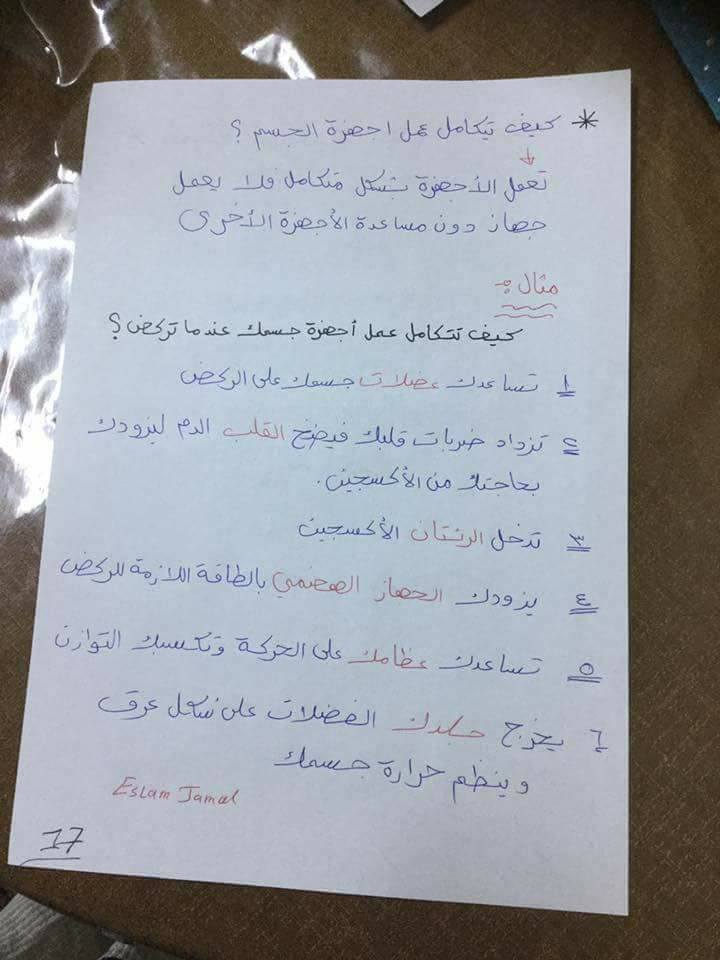 * كيف يتكامل عمل اجهزة الجسم ؟
تعمل الأجهزة بشكل متكامل فلا يعمل
جهاز دون مساعدة الأجهزة الأخرى
مثال :-
كيف تتكامل عمل أجهزة جسمك عندما تركض ؟
١ تساعدك عضلات جسمك على الركض
٢ تزداد ضربات قلبك فيضخ القلب الدم ليزودك
بحاجتك من الأكسجين .
٣ تدخل الرئتان الأكسجين
٤ يزودك الجهاز الهضمي بالطاقة اللازمة للركض
٥ تساعدك عظامك على الحركة وتكسبك التوازن
٦ يخرج جلدك الفضلات على شكل عرق
وينظم حرارة جسمك
Eslam Jamal
17